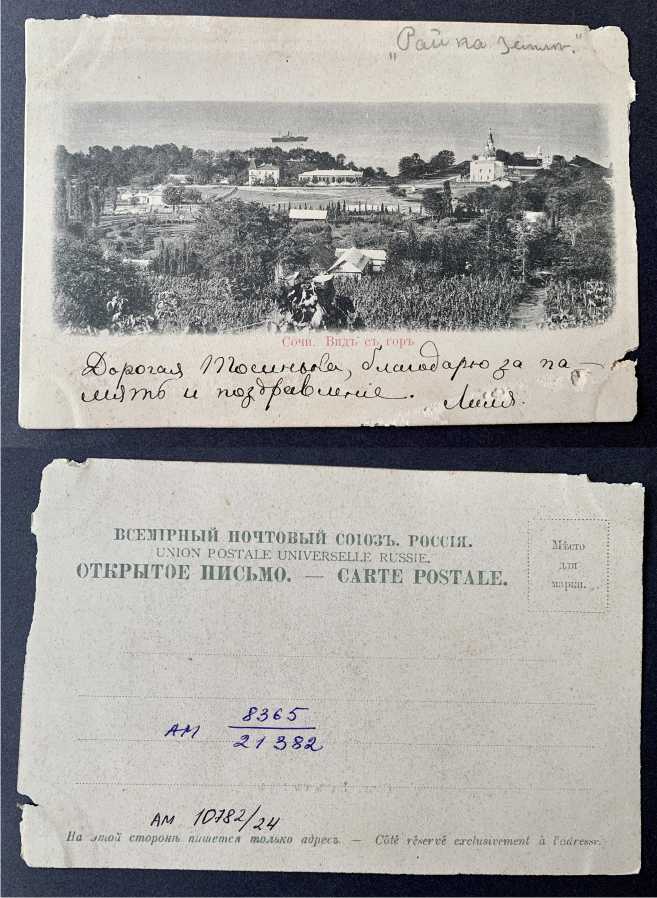 "Рай на земли."
Сочи. Видъ съ горъ
Дорогая Тосинька, благодарю за па-
мять и поздравленіе. Лиля.
ВСЕМІРНЫЙ ПОЧТОВЫЙ СОЮЗЪ. РОССІЯ.
UNION POSTALE UNIVERSELLE RUSSIE.
ОТКРЫТОЕ ПИСЬМО. — CARTE POSTALE.
Мѣсто
для
марки.
АМ 8365
21382
АМ 10782/24
На этой сторонѣ пишется только адресъ. — Côté réservé exclusivement à l'adresse.